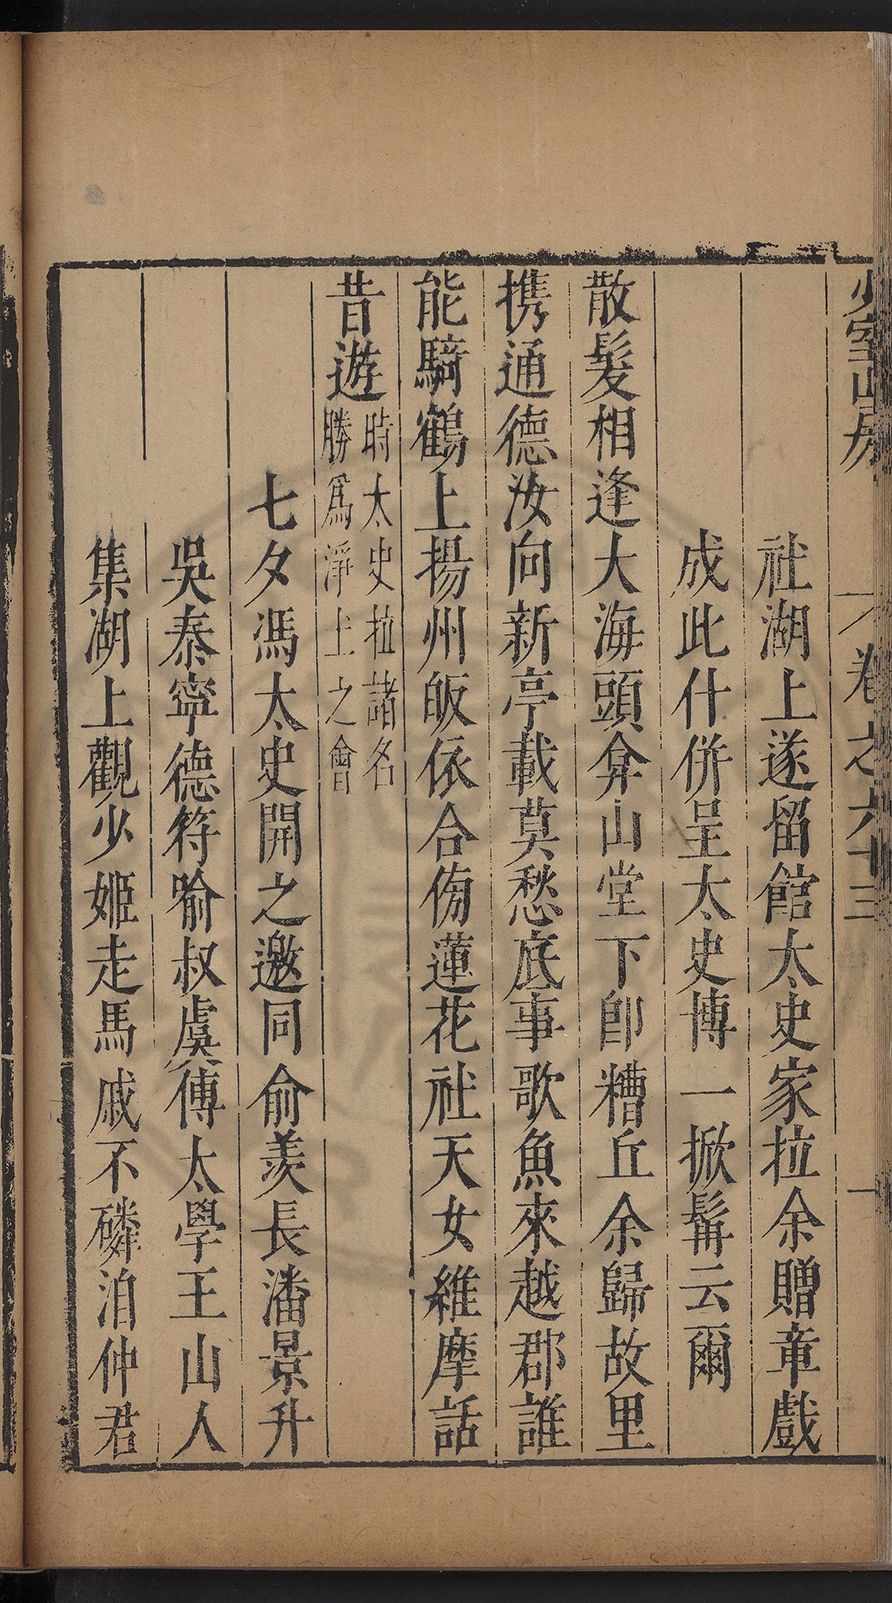 少室山房 卷之六十三 一
社湖上遂留館太史家拉余贈章戲
成此什併呈太史博一掀髯云爾
散髮相逢大海頭弇山堂下卽糟丘余歸故里
携通德汝向新亭載莫愁底事歌魚來越郡誰
能騎鶴上揚州皈依合傍蓮花社天女維摩話
昔遊時太史拉諸名
勝爲淨土之會
七夕馮太史開之邀同俞羨長潘景升
吳泰寧德符喻叔虞傅太學王山人
集湖上觀少姬走馬戚不磷洎仲君